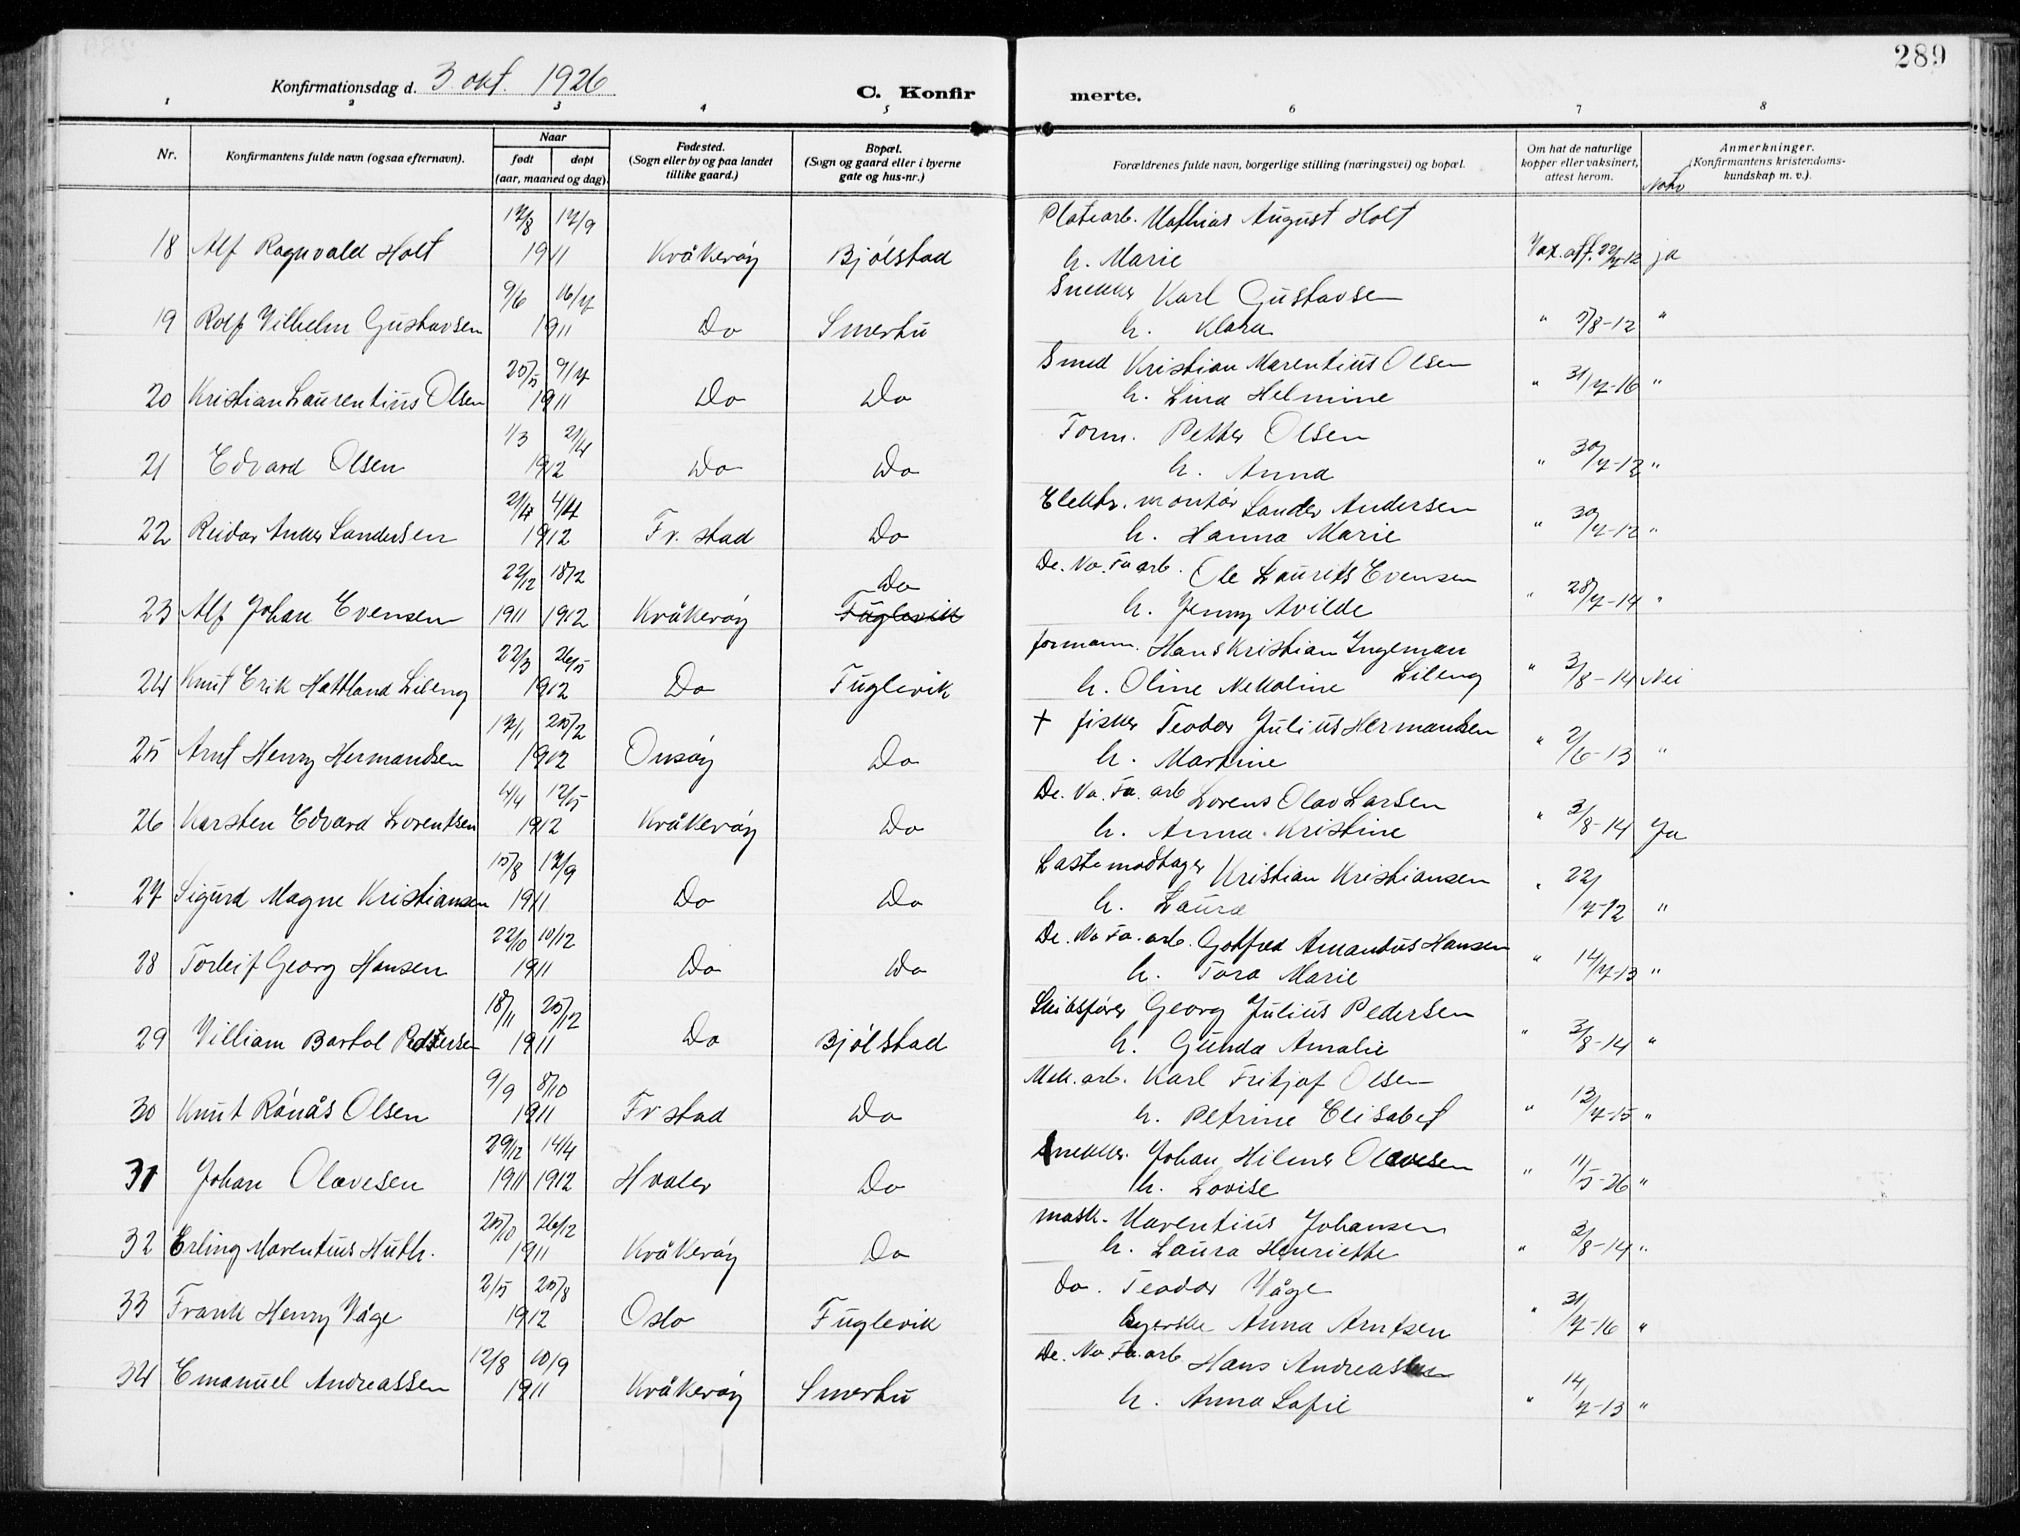 289
Konfirmationsdag d. 3. okt. 1926
C. Konfirmerte.
1 2 3 4 5 6 7 8
Nr. Konfirmantens fulde navn (ogsaa efternavn). Naar født døpt (aar, maaned og dag). Fødested. (Sogn eller by og paa landet tillike gaard.) Bopæl. (Sogn og gaard eller i byerne gate og hus-nr.) Forældrenes fulde navn, borgerlige stilling (næringsvei) og bopæl. Om hat de naturlige kopper eller vaksinert, attest herom. Anmerkninger. (Konfirmantens kristendomskundskap m. v.).
17/8 17/9 Platearb. Mathias August Holt
18 Alf Ragnvald Holt 1911 Kråkerøy Bjølstad h. Marie Vax. att. 22/7-12 ja
9/6 16/7 Snekker Karl Gustavsen
19 Rolf Vilhelm Gustavsen 1911 Do Smertu h. Klara " 7/8-12 "
25/5 9/7 Smed Kristian Marentius Olsen
20 Kristian Laurentius Olsen 1911 Do Do h. Lina Helmine " 31/7-16 "
1/3 21/4 Form. Petter Olsen
21 Edvard Olsen 1912 Do Do h. Anna " 30/7-12 "
2/4 4/4 Elektr. montør Sander Andersen
22 Reidar Ander Sandersen 1912 Fr. stad Do h. Hanna Marie " 30/7-12 "
22/12 18/2 Do De. No. Fa arb. Ole Laurits Evensen
23 Alf Johan Evensen 1911 1912 Kråkerøy Fuglevik h. Jenny Avilde " 28/7-14 "
22/3 26/5 formann. Hans Kristian Ingeman Lileng
24 Knut Erik Hattland Lileng 1912 Do Fuglevik h. Oline Nekoline " 3/8-14 Nei
17/1 25/2 + fisker Teodor Julius Hermansen
25 Arnt Henry Hermandsen 1912 Onsøy Do h. Martine " 2/6-13 "
4/4 12/5 De. No. Fa. arb Lorens Olav Larsen
26 Karsten Edvard Lorentsen 1912 Kråkerøy Do h. Anna Kristine " 3/8-14 Ja
15/8 17/9 Lastemodtager Kristian Kristiansen
27 Sigurd Magne Kristiansen 1911 Do Do h. Laura " 22/7-12 "
22/10 10/12 De. No Fa. arb. Gotfred Amandus Hansen
28 Torleif Georg Hansen 1911 Do Do h. Tora Marie " 14/7-13 "
18/11 25/12 Skibsfører Georg Julius Pedersen
29 Villiam Bartol Pedersen 1911 Do Bjølstad h. Gunda Amalie " 3/8-14 "
9/9 8/10 Mek. arb. Karl Fritjof Olsen
30 Knut Rånås Olsen 1911 Fr stad Do h. Petrine Elisabet " 13/7-15 "
29/12 14/4 Snekker. Johan Hilmer Olavesen
31 Johan Olavesen 1911 1912 Hvaler Do h. Lovise " 11/5-26 "
25/10 26/12 mask. Marentius Johansen
32 Erling Marentius Huth. 1911 Kråkerøy Do h. Laura Henriette " 3/8-14 "
2/5 25/8 Do. Teodor Våge
33 Frank Henry Våge 1912 Oslo Fuglevik Syerske Anna Arntsen " 31/7-16 "
12/8 10/9 De. No. Fa. arb Hans Andreassen
34 Emanuel Andreassen 1911 Kråkerøy Smertu h. Anna Sofie " 14/7-13 "